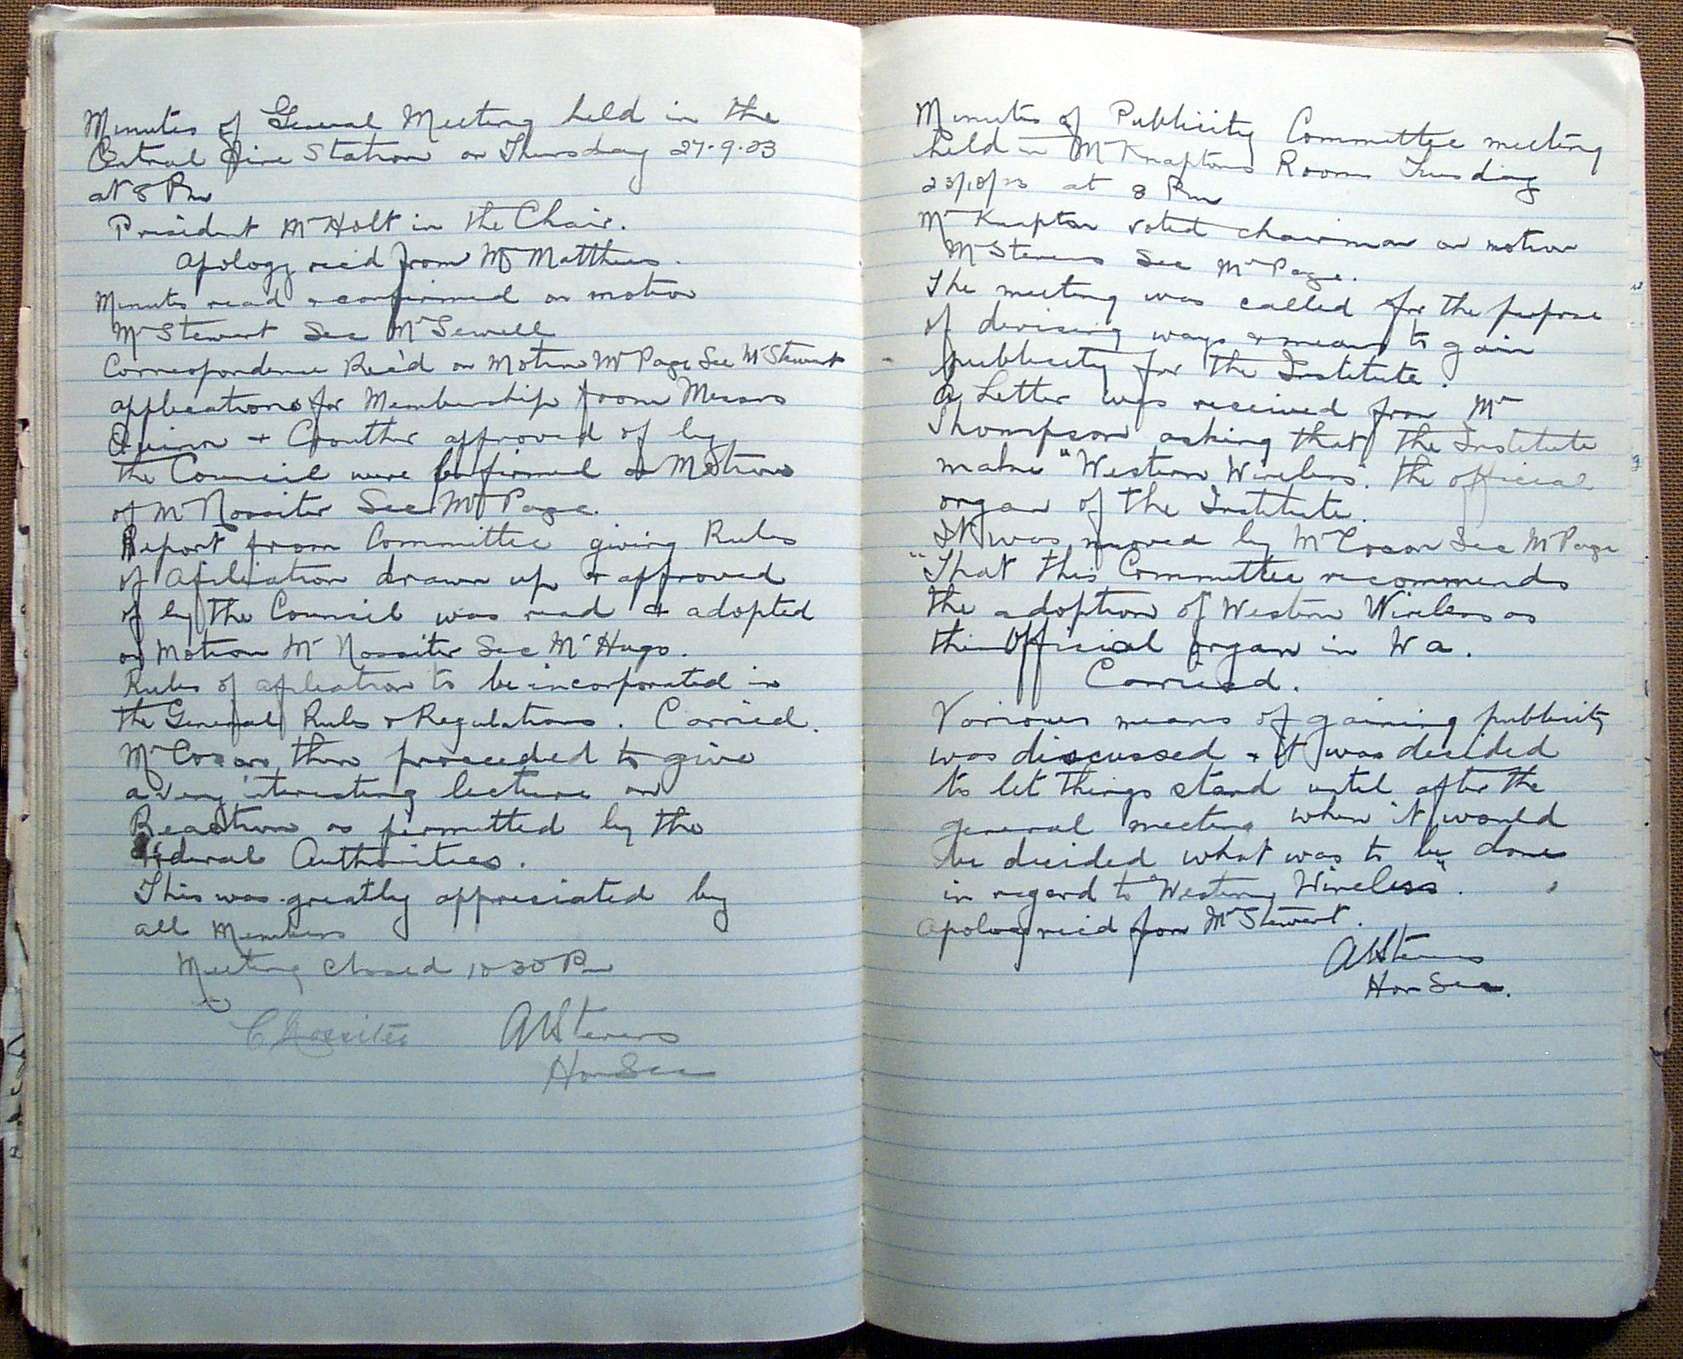 Minutes of General Meeting held in the
Central Fire Station on Thursday 27.9.23
at 8 Pm
President Mr Holt in the Chair.
Apology rec'd from Mr Matthews.
Minutes read & confirmed on motion
Mr Stewart Sec Mr Sewell
Correspondence Rec'd on Motion Mr Page Sec Mr Stewart
applications for Membership from Messrs
Quinn + Crouther approved of by
the Council were confirmed on Motion
of Mr Rossiter Sec Mr Page.
Report from Committee giving Rules
of Afiliation drawn up & approved
of by the Council was read & adopted
on Motion Mr Rossiter Sec Mr Hugo.
Rules of afiliation to be incorporated in
the General Rules & Regulations. Carried.
Mr Coxon then proceeded to give
a very interesting lecture on
Reaction as permitted by the
Federal Authorities.
This was greatly appreciated by
all Members
Meeting Closed 10 30 Pm
C Rossiter AE Stevens
Hon Sec
Minutes of Publicity Committee meeting
held in Mr Knaptons Rooms Tuesday
23/10/23 at 8 Pm
Mr Knapton voted chairman on motion
Mr Stevens Sec Mr Page.
The meeting was called for the purpose
of devising ways & means to gain
publicity for the Institute.
A Letter was received from Mr
Thompson asking that the Institute
make "Western Wireless". the official
organ of the Institute.
It was moved by Mr Coxon Sec Mr Page
"That this Committee recommends
the adoption of Western Wireless as
the Official organ in W a.
Carried.
Various means of gaining publicity
was discussed & it was decided
to let things stand until after the
general meeting when it would
be decided what was to be done
in regard to "Western Wireless".
Apology rec'd from Mr Stewart.
Stevens
Hon Sec.